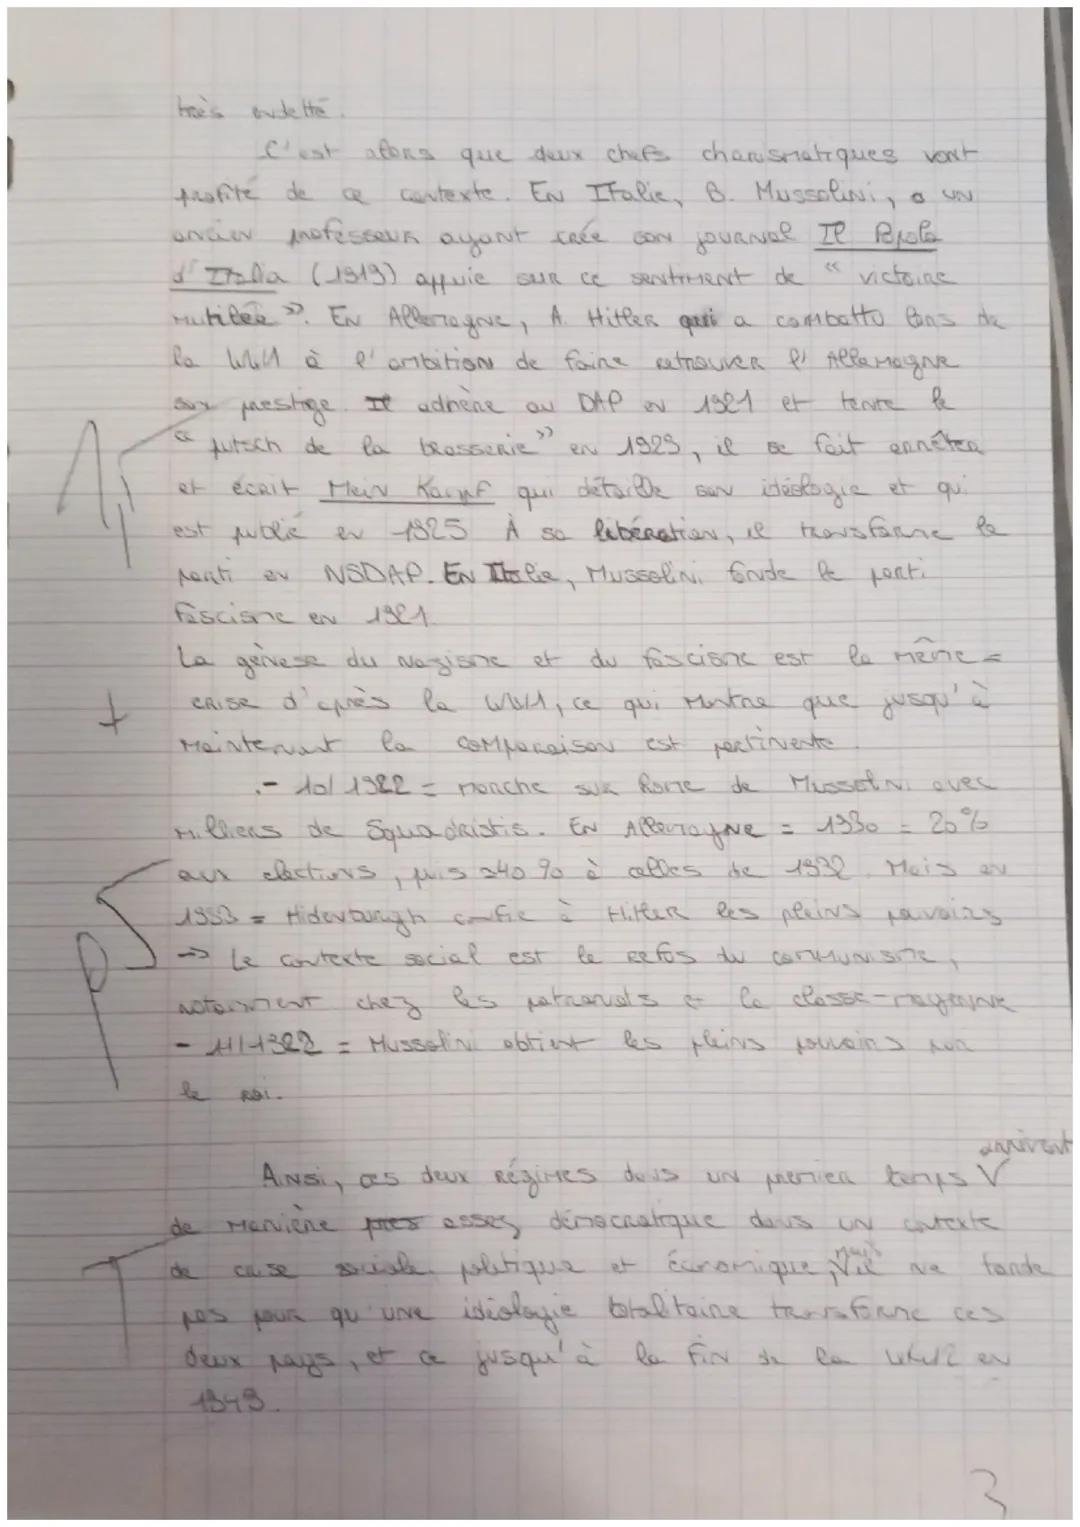 très endetté.
C'est alors que deux chefs charismatiques vont
profité de ce contexte. En Italie, B. Mussolini, un
ancien professeur ayant créé son journal Il Popolo
d'Italia (1919) appuie sur ce sentiment de " victoire
mutilée ". En Allemagne, A. Hitler qui a combattu lors de
la WW1 à l'ambition de faire retrouver l'Allemagne
son prestige. Il adhère au DAP en 1921 et tente le
" putsch de la brasserie " en 1923, il se fait arrêter
et écrit Mein Kampf qui détaille son idéologie et qui
est publié en 1925 À sa libération, il transforme le
parti en NSDAP. En Italie, Mussolini fonde le parti
fascisme en 1921.
La génèse du nazisme et du fascisme est la même =
crise d'après la WW1, ce qui montre que jusqu'à
maintenant la comparaison est pertinente.
- 10/1922 = marche sur Rome de Mussolini avec
milliers de Squadristis. En Allemagne = 1930 = 20%
aux élections, puis 40 % à celles de 1932. Mais en
1933 = Hidenburgh confie à Hitler les pleins pouvoirs
-> Le contexte social est le refus du communisme,
notamment chez les patronats et la classe-moyenne
- 11/1922 = Mussolini obtient les pleins pouvoirs par
le roi.
arrivent
Ainsi, ces deux régimes dans un premier temps V
de manière assez démocratique dans un contexte
de crise sociale politique et économique, mais il ne tarde
pas pour qu'une idéologie totalitaire transforme ces
deux pays, et ce jusqu'à la fin de la WW2 en
1945.
3